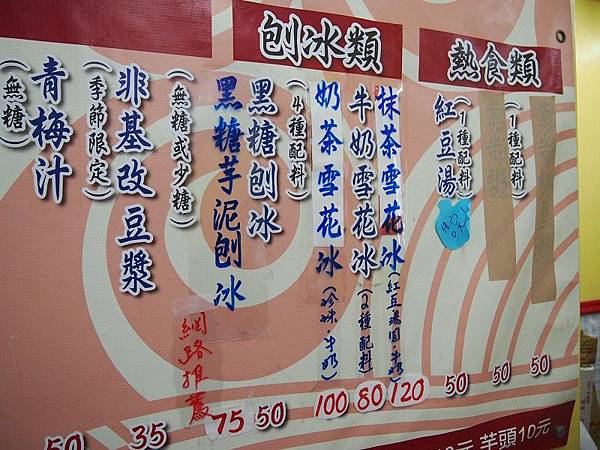 熱食類
(1種配料)
50
50
紅豆湯
(1種配料)
50
刨冰類
抹茶雪花冰(紅豆湯圓.牛奶)
120
牛奶雪花冰(2種配料)
80
奶茶雪花冰(珍珠.牛奶)
100
黑糖刨冰
(4種配料)
50
黑糖芋泥刨冰
75
網路推薦
非基改豆漿
(無糖或少糖)
35
青梅汁
(季節限定)
(無糖)
50
元 芋頭10元